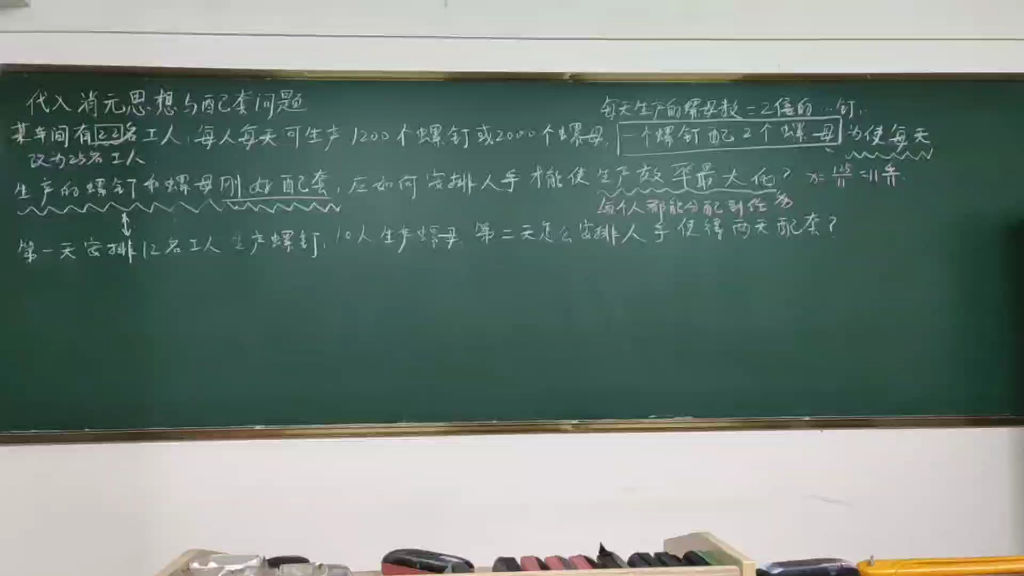 代入消元思想与配套问题
每天生产的螺母数=2倍的 钉.
某车间有22名工人,每人每天可生产1200个螺钉或2000个螺母,一个螺钉配2个螺母 为使每天
改为23名工人
生产的螺钉和螺母刚好配套,应如何安排人手才能使生产效率最大化? x=115/11=
每个人都能分配到任务
第一天安排12名工人生产螺钉,10人生产螺母,第二天怎么安排人手使得两天配套?